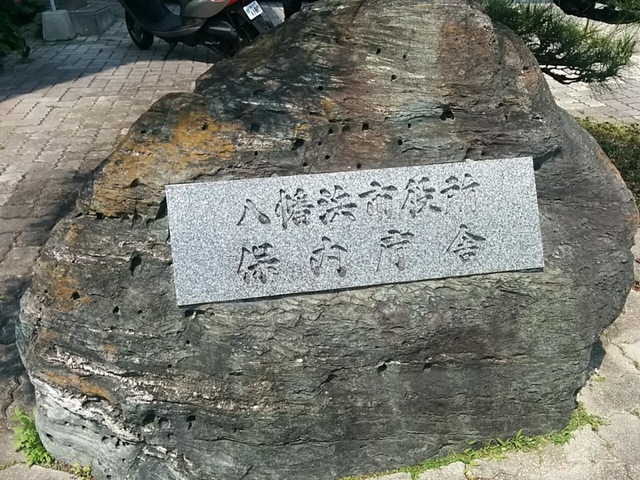 八幡浜市役所
保内庁舎